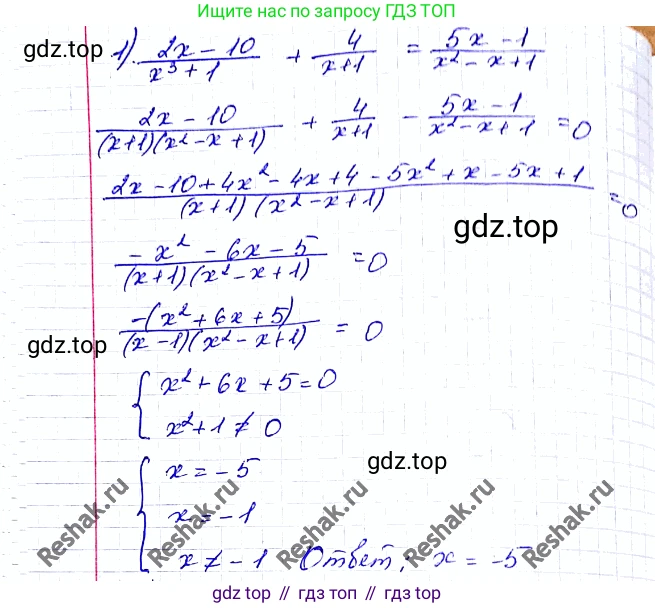 Ищите нас по запросу ГДЗ ТОП
gdz.top
1). (2x - 10)/(x³ + 1) + 4/(x+1) = (5x - 1)/(x² - x + 1)
(2x - 10)/((x+1)(x² - x + 1)) + 4/(x+1) - (5x - 1)/(x² - x + 1) = 0
(2x - 10 + 4x² - 4x + 4 - 5x² + x - 5x + 1)/((x+1)(x² - x + 1)) = 0
gdz.top
(-x² - 6x - 5)/((x+1)(x² - x + 1)) = 0
(-(x² + 6x + 5))/((x - 1)(x² - x + 1)) = 0
gdz.top
{ x² + 6x + 5 = 0
x² + 1 ≠ 0
{ x = -5
gdz.top
x = -1
x ≠ -1 Ответ: x = -5
Reshak.ru
Reshak.ru
Reshak.ru
Reshak.ru
gdz top // гдз топ // gdz top // гдз топ